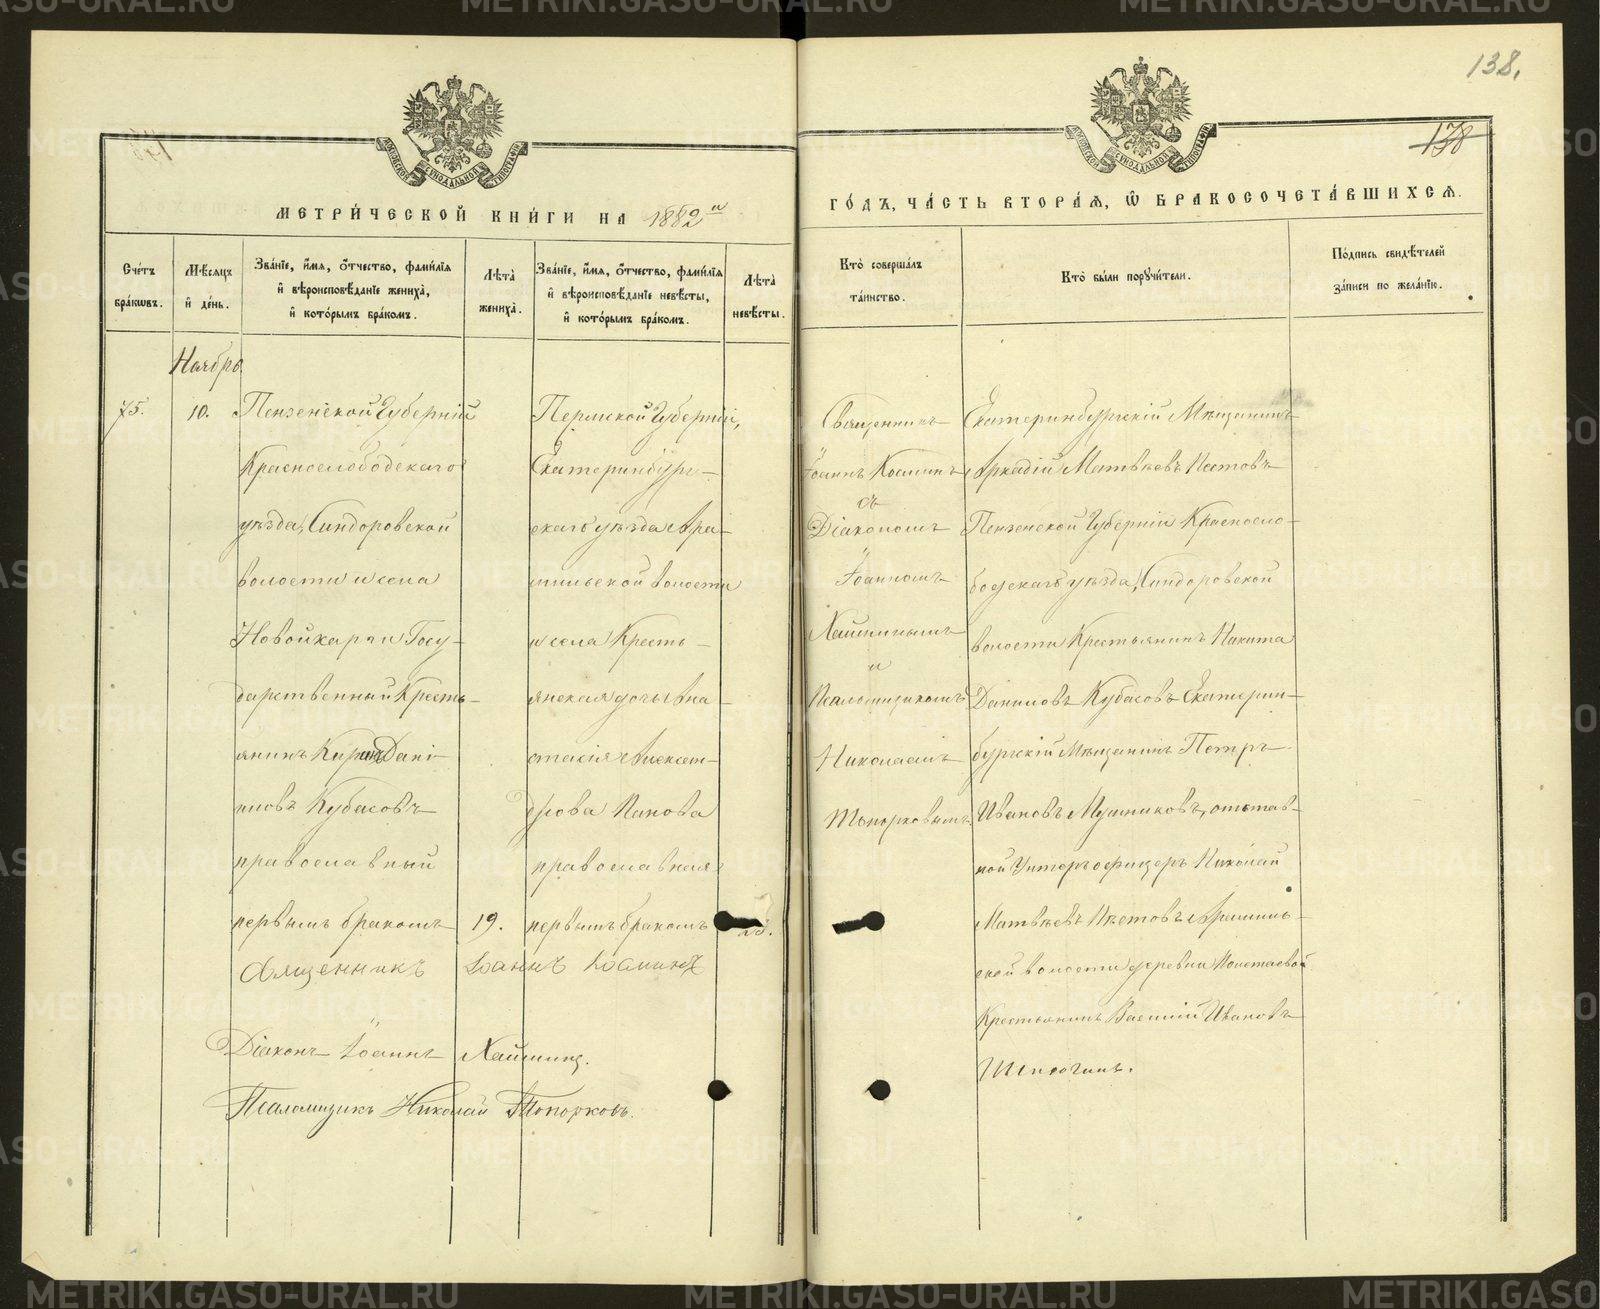 138.
138
МЕТРИ́ЧЕСКОЙ КНИ́ГИ НА 1882й
ГО́ДЪ, ЧА́СТЬ ВТОРА́Я, Ѡ БРАКОСОЧЕТА́ВШИХСЯ.
Сче́тъ бра́ковъ.
Мѣ́сяцъ и́ де́нь.
Зва́нїе, и́мя, о́тчество, фами́лїя и́ вѣроисповѣ́данїе жениха̀, и́ кото́рымъ бра́комъ.
Лѣта̀ жениха̀.
Зва́нїе, и́мя, о́тчество, фами́лїя и́ вѣроисповѣ́данїе невѣ́сты, и́ кото́рымъ бра́комъ.
Лѣта̀ невѣ́сты.
Кто̀ соверша́лъ та́инство.
Кто̀ бы́ли порꙋчи́тели.
По́дпись свидѣ́телей за́писи по жела́нїю.
Ноябрь
75.
10.
Пензенской Губерніи
Краснослободскаго
уѣзда, Синдоровской
волости и села
Новой карги Госу-
дарственный Кресть-
янинъ Даніи-
ловъ Кубасовъ
православный
первымъ бракомъ
19.
Пермской Губерніи,
Екатеринбург-
скаго уѣзда Ара-
мильской волости
и села Кресть-
янская дочь Ана-
стасія Алексан-
дрова Панова
православная
первымъ бракомъ
Священникъ
Іоаннъ Косминъ
съ
Діакономъ
Іоанномъ
Хайминымъ
и
Псаломщикомъ
Николаемъ
Топорковымъ
Екатеринбургскій Мѣщанинъ
Аркадій Матвѣевъ
Пензенской Губерніи Краснослобо-
бодскаго уѣзда, Синдоровской
волости Крестьянинъ Никита
Даниловъ Кубасовъ Екатерин-
бургскій Мѣщанинъ Петръ
Ивановъ отстав-
ной Унтеръ офицеръ Николай
Матвѣевъ Арамиль-
ской волости деревни
Крестьянинъ Василій Ивановъ
Священникъ Іоаннъ Косминъ
Діаконъ Іоаннъ Хайминъ.
Псаломщикъ Николай Топорковъ.
METRIKI.GASO-URAL.RU